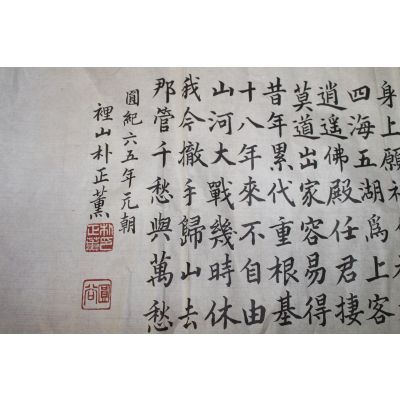 身上願
四海五湖爲上客
逍遙佛殿任君棲
莫道出家容易得
昔年累代重根基
十八年來不自由
山河大戰幾時休
我今撤手歸山去
那管千愁與萬愁
圓紀六五年元朝
裡山朴正薰
圓谷